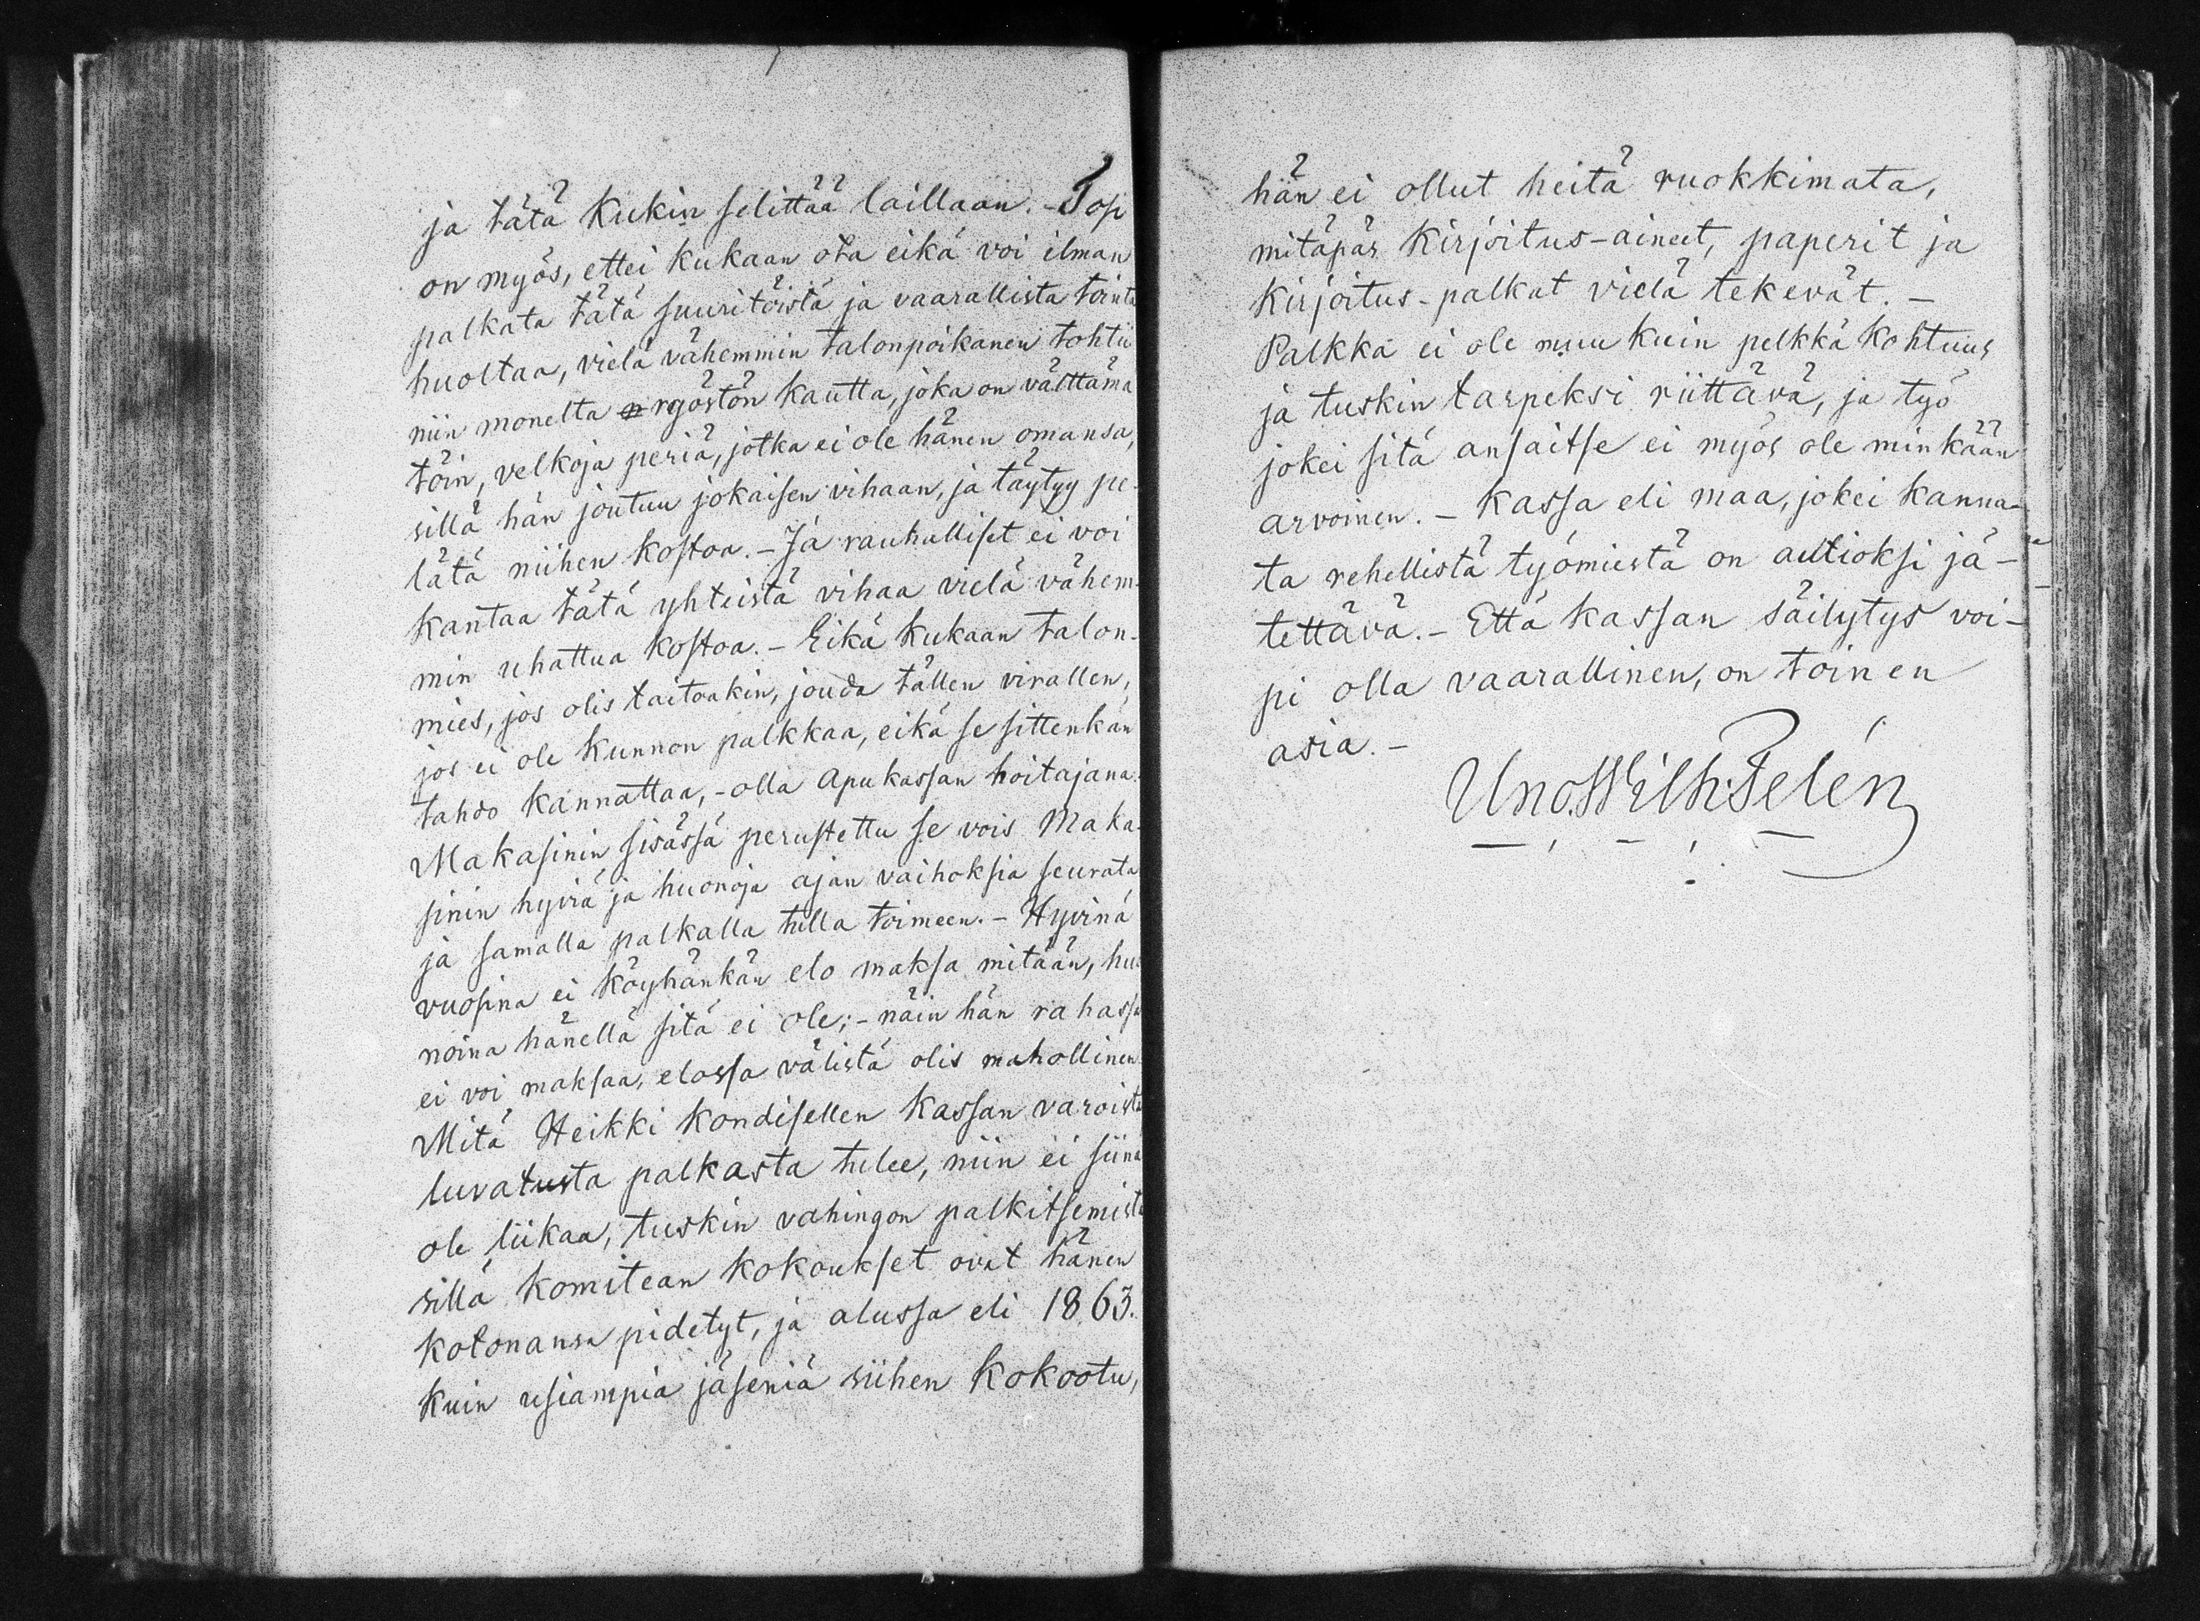 ja tätä kukin selittää laillaan. – Tosi
on myös, ettei kukaan ota eikä voi ilman
palkata tätä suuritöistä ja vaarallista tointa
huoltaa, vielä vähemmin talonpoikanen tohtii
niin monelta ryöstön kautta, joka on välttämä
töin, velkoja periä, jotka ei ole hänen omansa,
sillä hän joutuu jokaisen vihaan, ja täytyy pe-
lätä niihen kostoa. – Ja rauhalliset ei voi
kantaa tätä yhteistä vihaa vielä vähem-
min uhattua kostoa. – Eikä kukaan talon-
mies, jos olis taitoakin, jouda tällen virallen,
jos ei ole kunnon palkkaa, eikä se sittenkän
tahdo kannattaa, – olla Apukassan hoitajana.
Makasinin sisässä perustettu se vois Maka-
sinin hyviä ja huonoja ajan vaihoksia seurata
ja samalla palkalla tulla toimeen. – Hyvinä
vuosina ei köyhänkän elo maksa mitään, huo
noina hänellä sitä ei ole; – näin hän rahassa
ei voi maksaa, elossa välistä olis mahollinen
Mitä Heikki Kondisellen kassan varoista
luvatusta palkasta tulee, niin ei siinä
ole liikaa, tuskin vahingon palkitsemista
sillä komitean kokoukset ovat hänen
kotonansa pidetyt, ja alussa eli 1863.
kuin usiampia jäseniä siihen kokootu,
hän ei ollut heitä ruokkimata,
mitäpäs kirjoitus-aineet, paperit ja
kirjoitus-palkat vielä tekevät. –
Palkka ei ole muu kuin pelkkä kohtuus
ja tuskin tarpeksi riittävä, ja työ
jokei sitä ansaitse ei myös ole minkään
arvoinen. – Kassa eli maa, jokei kanna-
ta rehellistä työmiestä on autioksi jä-
tettävä. – Että kassan säilytys voi-
pi olla vaarallinen, on toinen
asia. –
Uno. Wilh. Telén